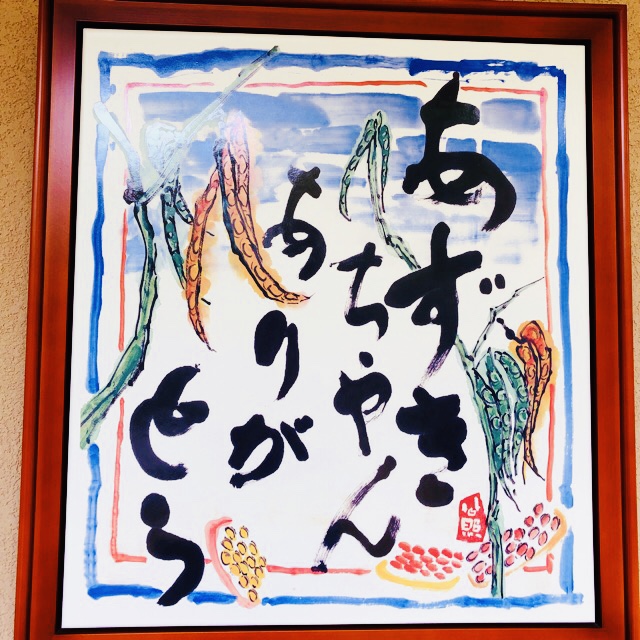 あずき
ちゃん
ありが
とう